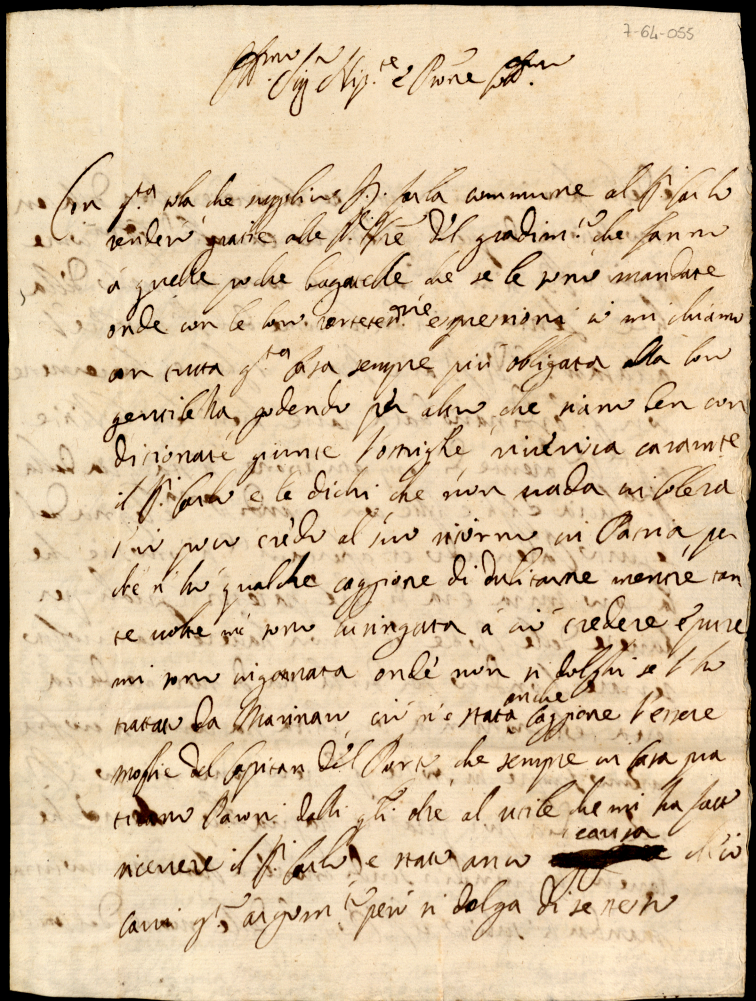 7-64-055
Sig.r Nip.te e Prone
Con q.ta sola che supplirà p. farla commune al S.r Carlo
renderò gratie alle del gradim.to che fanno
à quelle poche bagatelle che se le sono mandate
onde con le loro espressioni io mi chiamo
con tutta q.ta Casa sempre più obligata alla loro
gentilezza, godendo per altro che siano ben con
ditionate giunte l'ostriche, riverisca caram.te
il S.r Carlo e le dichi che non vada in colera
s'io poco credo al suo ritorno in Patria per
che n'hò qualche caggione di dubitarne mentre tan
te volte mi sono lusingata à ciò credere e pure
mi sono ingannata onde non si dolghi se l'ho
trattato da Marinaro, ciò n'è stata anche caggione l'essere
moglie del Capitan del Porto, che sempre in Casa pra
ticano Paroni dalli q.li oltre al utile che mi ha fatto
ricevere il S.r Carlo è stato anco causa ch'io
cavi q.to argom.to però si dolga di se stesso